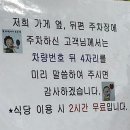 저희 가게 옆, 뒤편 주차장에
주차하신 고객님께서는
차량번호 뒤 4자리를
미리 말씀하여 주시면
감사하겠습니다.
*식당 이용 시 2시간 무료입니다.